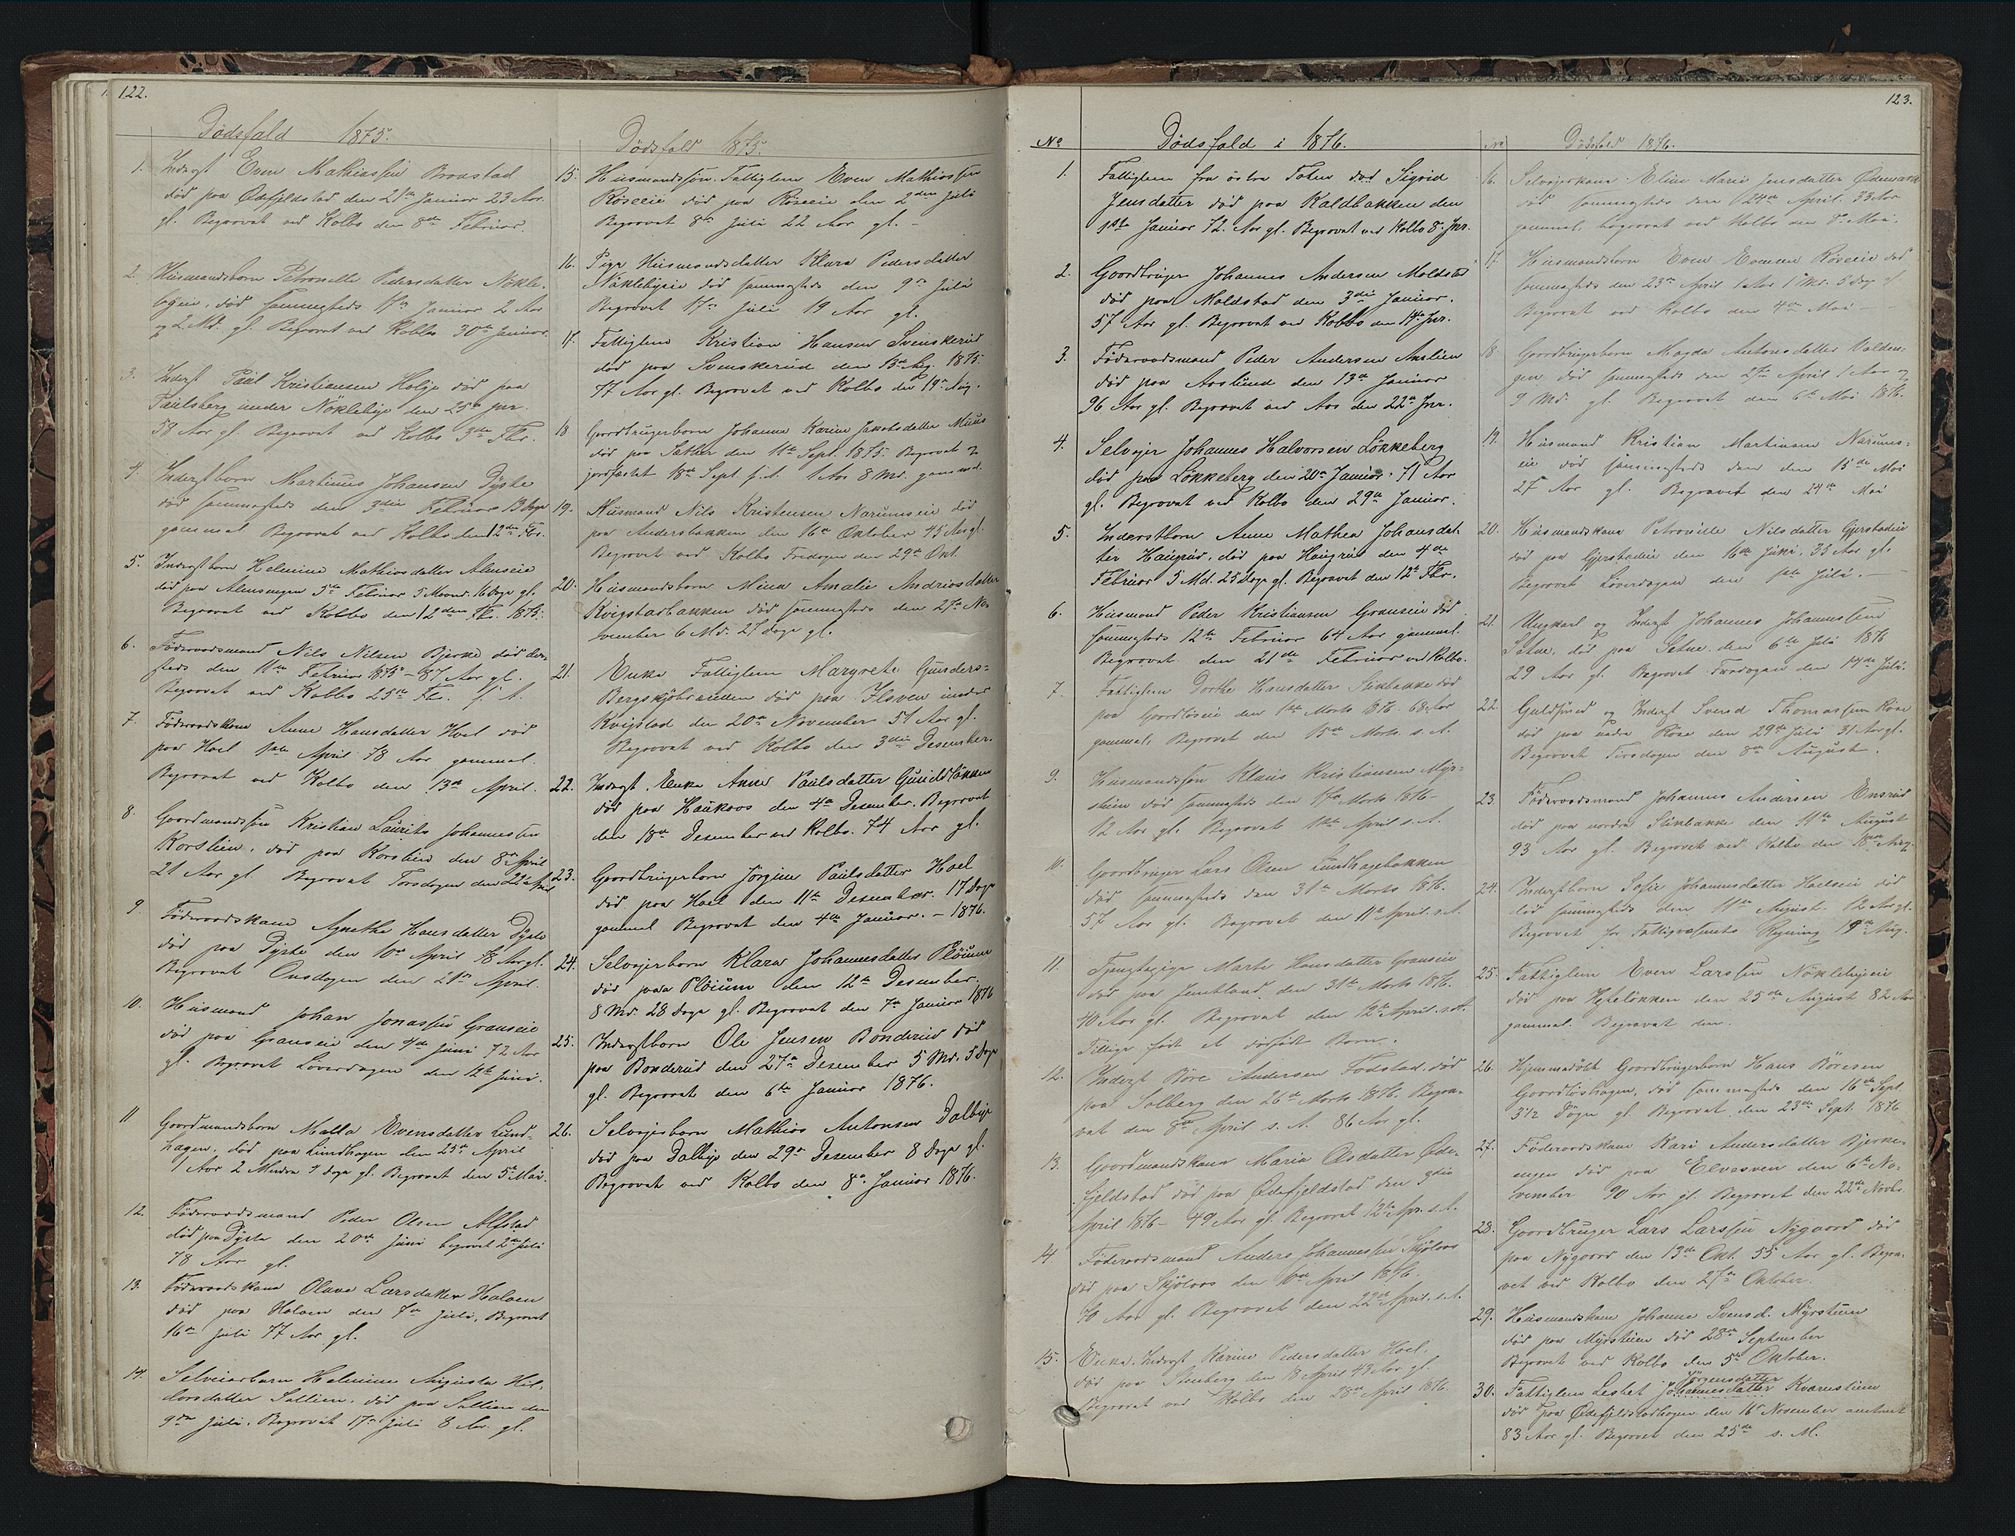 122.
Dödsfald 1875.
1. Inderst Even Mathiassen Braastad
död paa Ødefjeldstad den 21de Januar 23 Aar
gl. Begravet ved Kolbo den 8de Februar.
2. Husmandsbarn Petronelle Pedersdatter Nökle-
byeie, död sammesteds Januar 2 Aar
og 2 Md. gl. Begravet ved Kolbo 30te Januar.
3. Inderst Paul Kristiansen Holje död paa
Paulsberg under Nökleby den 25de Jnr.
58 Aar gl. Begravet ved Kolbo 5te Fbr.
4. Inderstbarn Martinus Johansen Dyste
död sammesteds den 3die Februar Dage
gammel Begravet ved Kolbo den 12de Fbr.
5. Inderstbarn Helmine Mathiasdatter Almseie
död paa den 5te Februar 5 Maaned. 16 Dage gl.
Begravet ved Kolbo den 12den Fbr. 1875.
6. Föderaadsmand Nils Nilsen Bjerke död der-
steds den 11te Februar 1875 - 87 Aar gl.
Begravet ved Kolbo 25de Fbr. s. A.
7. Föderaadskone Anne Hansdatter Hoel död
paa Hoel 1ste April 78 Aar gammel.
Begravet ved Kolbo den 13de April.
8. Gaardmandssön Kristian Laurits Johannessen
Korslien, död paa Korslien den 8de April
21 Aar gl Begravet Torsdagen den 22de April
9. Föderaadskone Agnethe Hansdatter Dyste
död paa Dyste den 10de April 78 Aar gl.
Begravet Onsdagen den 21de April.
10. Husmand Johan Jonassen Granseie
död paa Granseie den 4de Juni 72 Aar
gl. Begravet Löverdagen den 12te Juni.
11 Gaardmandsbarn Malla Evensdatter Lund-
hagen, död paa Lundhagen den 25de April
1 Aar 2 Dage gl. Begravet den 5te Mai.
12. Föderaadsmand Peder Olsen Alfstad
död paa Dyste den 20de Juni begravet 2den Juli
78 Aar gl.
13. Föderaadskone Olava Larsdatter Halven
död paa Halven den 7de Juli, Begravet
16de Juli 77 Aar gl.
14. Selveierbarn Helmine Augusta Hal-
vorsdatter Sollien, död paa Sollien den
9de Juli. Begravet 17de Juli 8 Aar gl.
Dödsfald 1875.
15. Husmandssön. Fattiglem Even Mathiassen
Röseeie död paa Röseeie den 2den Juli
Begravet 8de Juli 22 Aar gl. -
16. Pige Husmandsdatter Klara Pedersdatter
Nöklebyeie död sammesteds den 9de Juli
Begravet 17de Juli 19 Aar gl.
17. Fattiglem Kristian Hansen Svenskerud
död paa Svenskerud den 13de Aug. 1875.
77 Aar gl. Begravet ved Kolbo den 19de Aug.
18 Gaardbrugerbarn Johanne Karine Jakobsdatter Muus
död paa Sæther den 11te Sept. 1875. Begravet og
jordfæstet 18de Sept s. A. 1 Aar 8 Md. gammel.
19. Husmand Nils Kristensen Narumseie död
paa Andersbakken den 16de Oktober 45 Aar gl.
Begravet ved Kolbo Fredagen den 29de Okt.
20. Husmandsbarn Mina Amalie Andriasdatter
Kvigstadbakken död sammesteds den 27de No-
vember 6 Md. 27 Dage gl.
21. Enke Fattiglem Margrete Gunders-
Bergskjbræinden död paa Ilsven under
Kvigstad den 20de November 51 Aar gl.
Begravet ved Kolbo den 3die Desember.
22. Inderst. Enke Anne Paulsdatter
död paa Haukaas den 4de Desember. Begravet
den 18de Desember ved Kolbo. 74 Aar gl.
23. Gaardbrugerbarn Jörgine Paulsdatter Hoel
död paa Hoel den 11te Desember. 17 Dage
gammel Begravet den 4de Januar. - 1876.
24. Selveierbarn Klara Johannesdatter Plöium
död paa Plöium den 12te Desember.
8 Md. 28 Dage gl. Begravet den 7de Januar 1876
25. Inderstbarn Ole Jensen Bonderud död
paa Bonderud den 27de Desember 5 Md. 5 Dage
gl. Begravet den 6te Januar 1876.
26. Selveierbarn Mathias Antonsen Dalbye
död paa Dalbye den 29de Desember 8 Dage gl.
Begravet ved Kolbo den 8de Januar 1876.
123.
No Dödsfald i 1876.
1. Fattiglem fra östre Toten död Sigrid
Jensdatter död paa Kaldbakken den
1ste Januar 72 Aar gl. Begravet ved Kolbo 8. Jnr.
2. Gaardbruger Johannes Andersen Moldstad
död paa Moldstad den 3die Januar.
57 Aar gl. Begravet ved Kolbo den 14de Jnr.
3. Föderaadsmand Peder Andersen Aaslien
död paa Aaslund den 13de Januar
96 Aar gl. Begravet ved Aas den 22de Jnr.
4. Selveier Johannes Halvorsen Lökkeberg
död paa Lökkeberg den 20de Januar. 71 Aar
gl. Begravet ved Kolbo den 29de Januar.
5. Inderstbarn Anne Mathea Johansdat-
ter Haugrud, död paa Haugrud den 4de
Februar 5 Md. 25 Dage gl. Begravet den 12te Fbr.
6. Husmand Peder Kristiansen Granseie död
sammesteds 12te Februar 64 Aar gammel.
Begravet den 21de Februar ved Kolbo.
7. Fattiglem Dorthe Hansdatter Stenbakke död
paa den 1ste Marts 1876 68 Aar
gammel, Begravet den 15de Marts s. A.
9. Husmandssön Klaus Kristiansen Myr-
stuen död sammesteds den 17de Marts 1876-
12 Aar gl. Begravet 1ste April s. A.
10. Gaardbruger Lars Olsen Lundhagebakken
död sammesteds den 31te Marts 1876.
57 Aar gl. Begravet den 11te April. s. A.
11. Tjenestepige Marte Hansdatter Granseie
död paa den 31te Marts 1876.
40 Aar gl. Begravet den 12te April. s. A.
Tillige födt et dödfödt Barn.
12. Inderst Böre Andersen Fodstad. död
paa Solberg den 26de Marts 1876. Begra-
vet den 8de April s. A. 86 Aar gl.
13. Gaardmandskone Maria Olsdatter Øde-
fjeldstad död paa Ødefjeldstad den 3die
April 1876 - 49 Aar gl. Begravet 12te Apr. s. A.
14. Föderaadsmand Anders Johannessen Skjölaas
död paa Skjölaas den 10de April 1876.
70 Aar gl. Begravet den 22de April. s. A.
15. Enke. Inderst Karine Pedersdatter Hoel.
död paa Stenberg den 18 April 43 Aar gl.
Begravet ved Kolbo den 28de April 1876.
No Dödsfald 1876.
16. Selveierkone Eline Marie Jensdatter Ødemark
död sammesteds den 24de April. 33 Aar
gammel, begravet ved Kolbo den 8de Mai.
17. Husmandsbarn Even Evensen Röseeie död
sammesteds den 23de April 1 Aar 1 Md. 3 Dage gl
Begravet ved Kolbo den 4de Mai -
18. Gaardbrugerbarn Magda Antonsdatter Volden-
gen död sammesteds den 27de April 1 Aar og
9 Md. gl. Begravet den 6te Mai 1876.
19. Husmand Kristian Martinsen Narums-
eie död sammesteds den den 15de Mai
27 Aar gl. Begravet den 24de Mai
20. Husmandskone Petronelle Nilsdatter Gjerstadeie
död paa Gjerstadeie den 16de Juni, 33 Aar gl.
Begravet Löverdagen den 1ste Juli. -
21. Ungkarl og Inderst Johannes Johannessen
Sætne, död paa Sætne. den 6te Juli 1876
29 Aar gl. Begravet Fredagen den 14de Juli.
22. Guldsmed og Inderst Svend Thomassen Röise
död paa nedre Röise den 29de Juli 31 Aar gl.
Begravet Tirsdagen den 8de August.
23. Föderaadsmand Johannes Andersen Ensrud
död paa nordre Stenbakke den 11te August
93 Aar gl. Begravet ved Kolbo den 18de Aug.
24. Inderstbarn Sofie Johannesdatter Hoelseie död
död sammesteds den 11te August. 12 Aar gl.
Begravet for Fattigvæsenets Regning 19de Aug.
25. Fattiglem Even Larssen Nöklebyeie
död paa Hytelökken den 25de August 82 Aar
gammel. Begravet den.
26. Hjemmedöbt Gaardbrugerbarn Hans Böresen
Gaardlöshagen, död sammesteds den 16de Sept.
3 1/2 Dögn gl. Begravet den 23de Sept. 1876
27. Föderaadskone Kari Andersdatter Bjerke-
engen död paa Elvesven den 6te No-
vember 90 Aar gl. Begravet den 22de Novbr.
28. Gaardbruger Lars Larssen Nygaard död
paa Nygaard den 13de Okt. 55 Aar gl. Begra-
vet ved Kolbo den 27de Oktober.
29. Husmandskone Johanne Svensd. Myrstuen
död paa Myrstuen död 28de September
Begravet ved Kolbo den 5te Oktober.
Jörgensdatter
30. Fattiglem Lesbet Johannesdatter Kvarnstuen
död paa Ødefjeldstadhagen den 16de November omtrent
83 Aar gl. Begravet den 25de s. M.